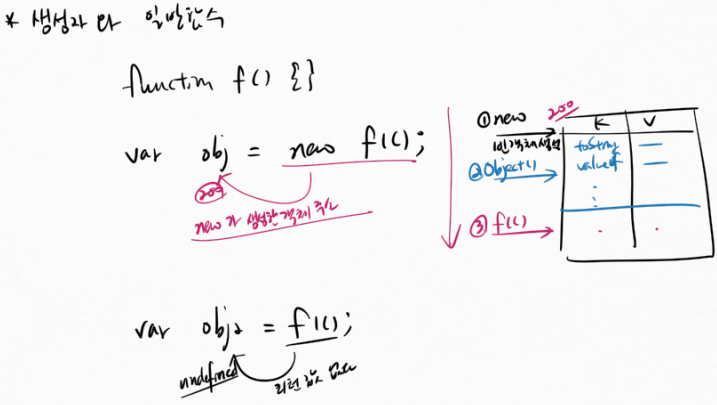 * 생성자 와 일반함수
function f() {}
var obj = new f();
200
new가 생성한 객체 주소
① new
200
빈객체생성
K V
② Object()
toString
valueOf
③ f()
var obj2 = f();
undefined
리턴 값 없다